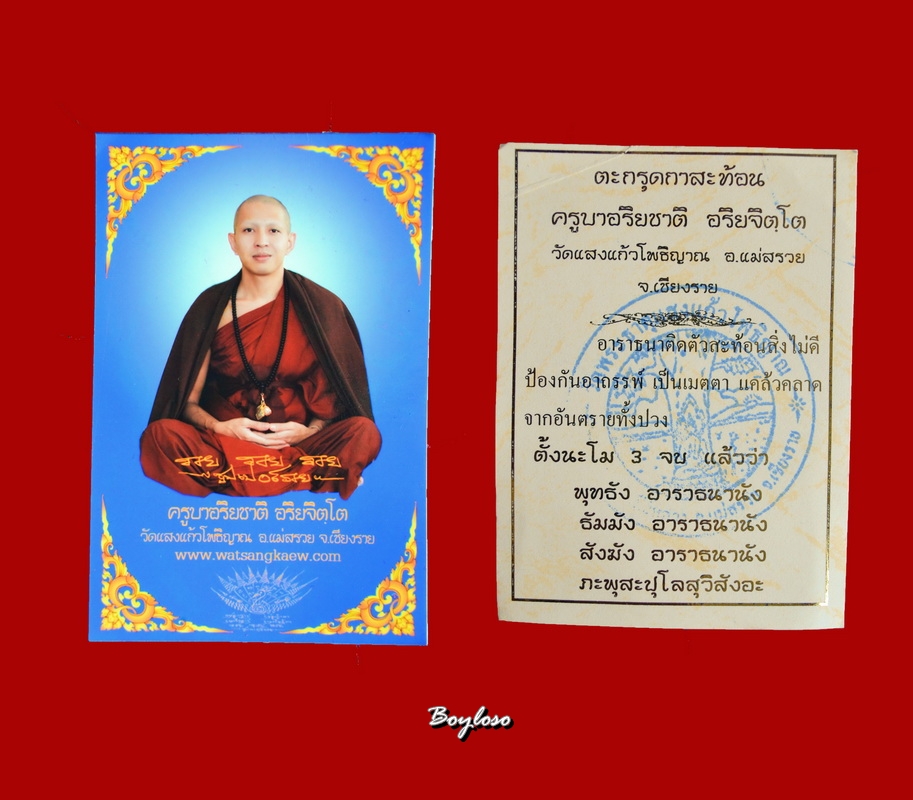 รวย รวย รวย
ครูบาอริยชาติ อริยจิตฺโต
วัดแสงแก้วโพธิญาณ อ.แม่สรวย จ.เชียงราย
www.watsangkaew.com
ตะกรุดกาสะท้อน
ครูบาอริยชาติ อริยจิตฺโต
วัดแสงแก้วโพธิญาณ อ.แม่สรวย
จ.เชียงราย
อาราธนาติดตัวสะท้อนสิ่งไม่ดี
ป้องกันอาถรรพ์ เป็นเมตตา แคล้วคลาด
จากอันตรายทั้งปวง
ตั้งนะโม 3 จบ แล้วว่า
พุทธัง อาราธนานัง
ธัมมัง อาราธนานัง
สังฆัง อาราธนานัง
ภะพุสะปุโลสุวิสังอะ
จ.เชียงราย
Boyloso